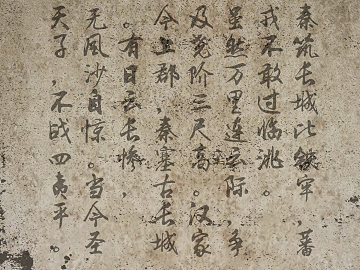 秦筑长城比鐵牢,蕃
戎不敢过临洮。
虽然万里连云际,争
及尧阶三尺高。汉家
今上郡,秦塞古长城
。有日云长惨,
无风沙自惊。当今圣
天子,不战四夷平。